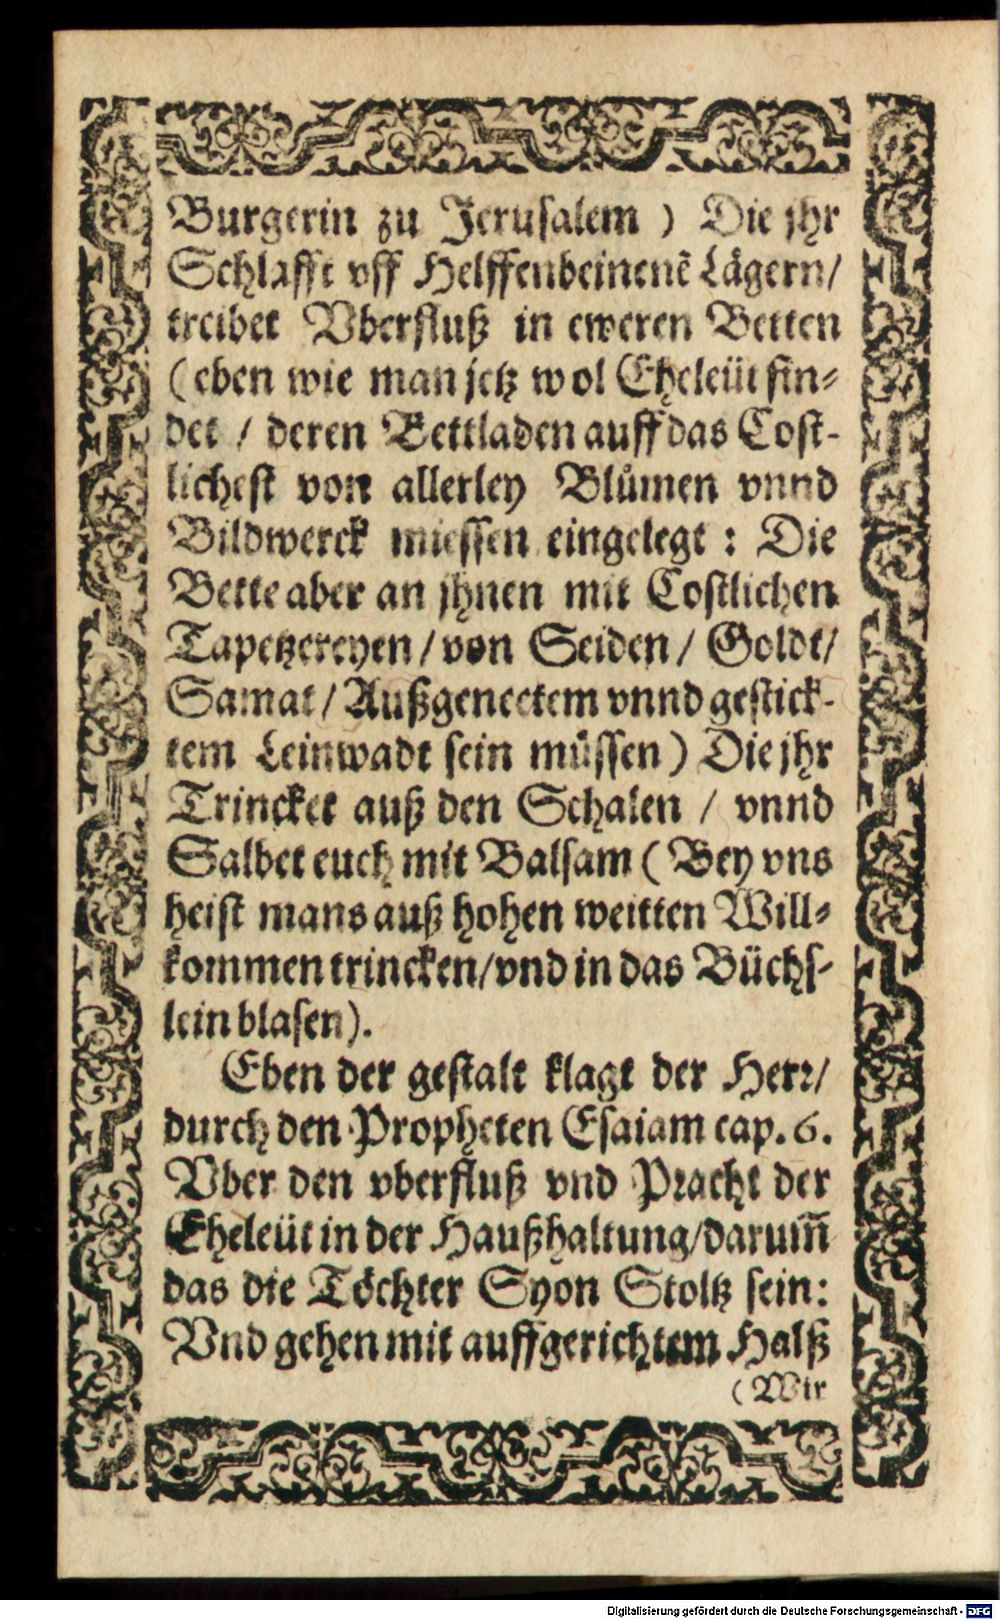 Burgerin zu Jerusalem ) Die jhr
Schlafft vff Helffenbeinenẽ Lägern/
treibet Vberfluß in eweren Betten
(eben wie man jetz wol Eheleüt fin-
det / deren Bettladen auff das Cost-
lichest von allerley Blůmen vnnd
Bildwerck miessen eingelegt : Die
Bette aber an jhnen mit Costlichen
Tapetzereyen / von Seiden / Goldt/
Samat / Außgeneetem vnnd gestick-
tem Leinwadt sein müssen) Die jhr
Trincket auß den Schalen / vnnd
Salbet euch mit Balsam ( Bey vns
heist mans auß hohen weitten Will-
kommen trincken/vnd in das Büchs-
lein blasen).
Eben der gestalt klagt der Herr/
durch den Propheten Esaiam cap. 6.
Vber den vberfluß vnd Pracht der
Eheleüt in der Haußhaltung/darum̃
das die Töchter Syon Stoltz sein:
Vnd gehen mit auffgerichtem Halß
(Wir
Digitalisierung gefördert durch die Deutsche Forschungsgemeinschaft - DFG